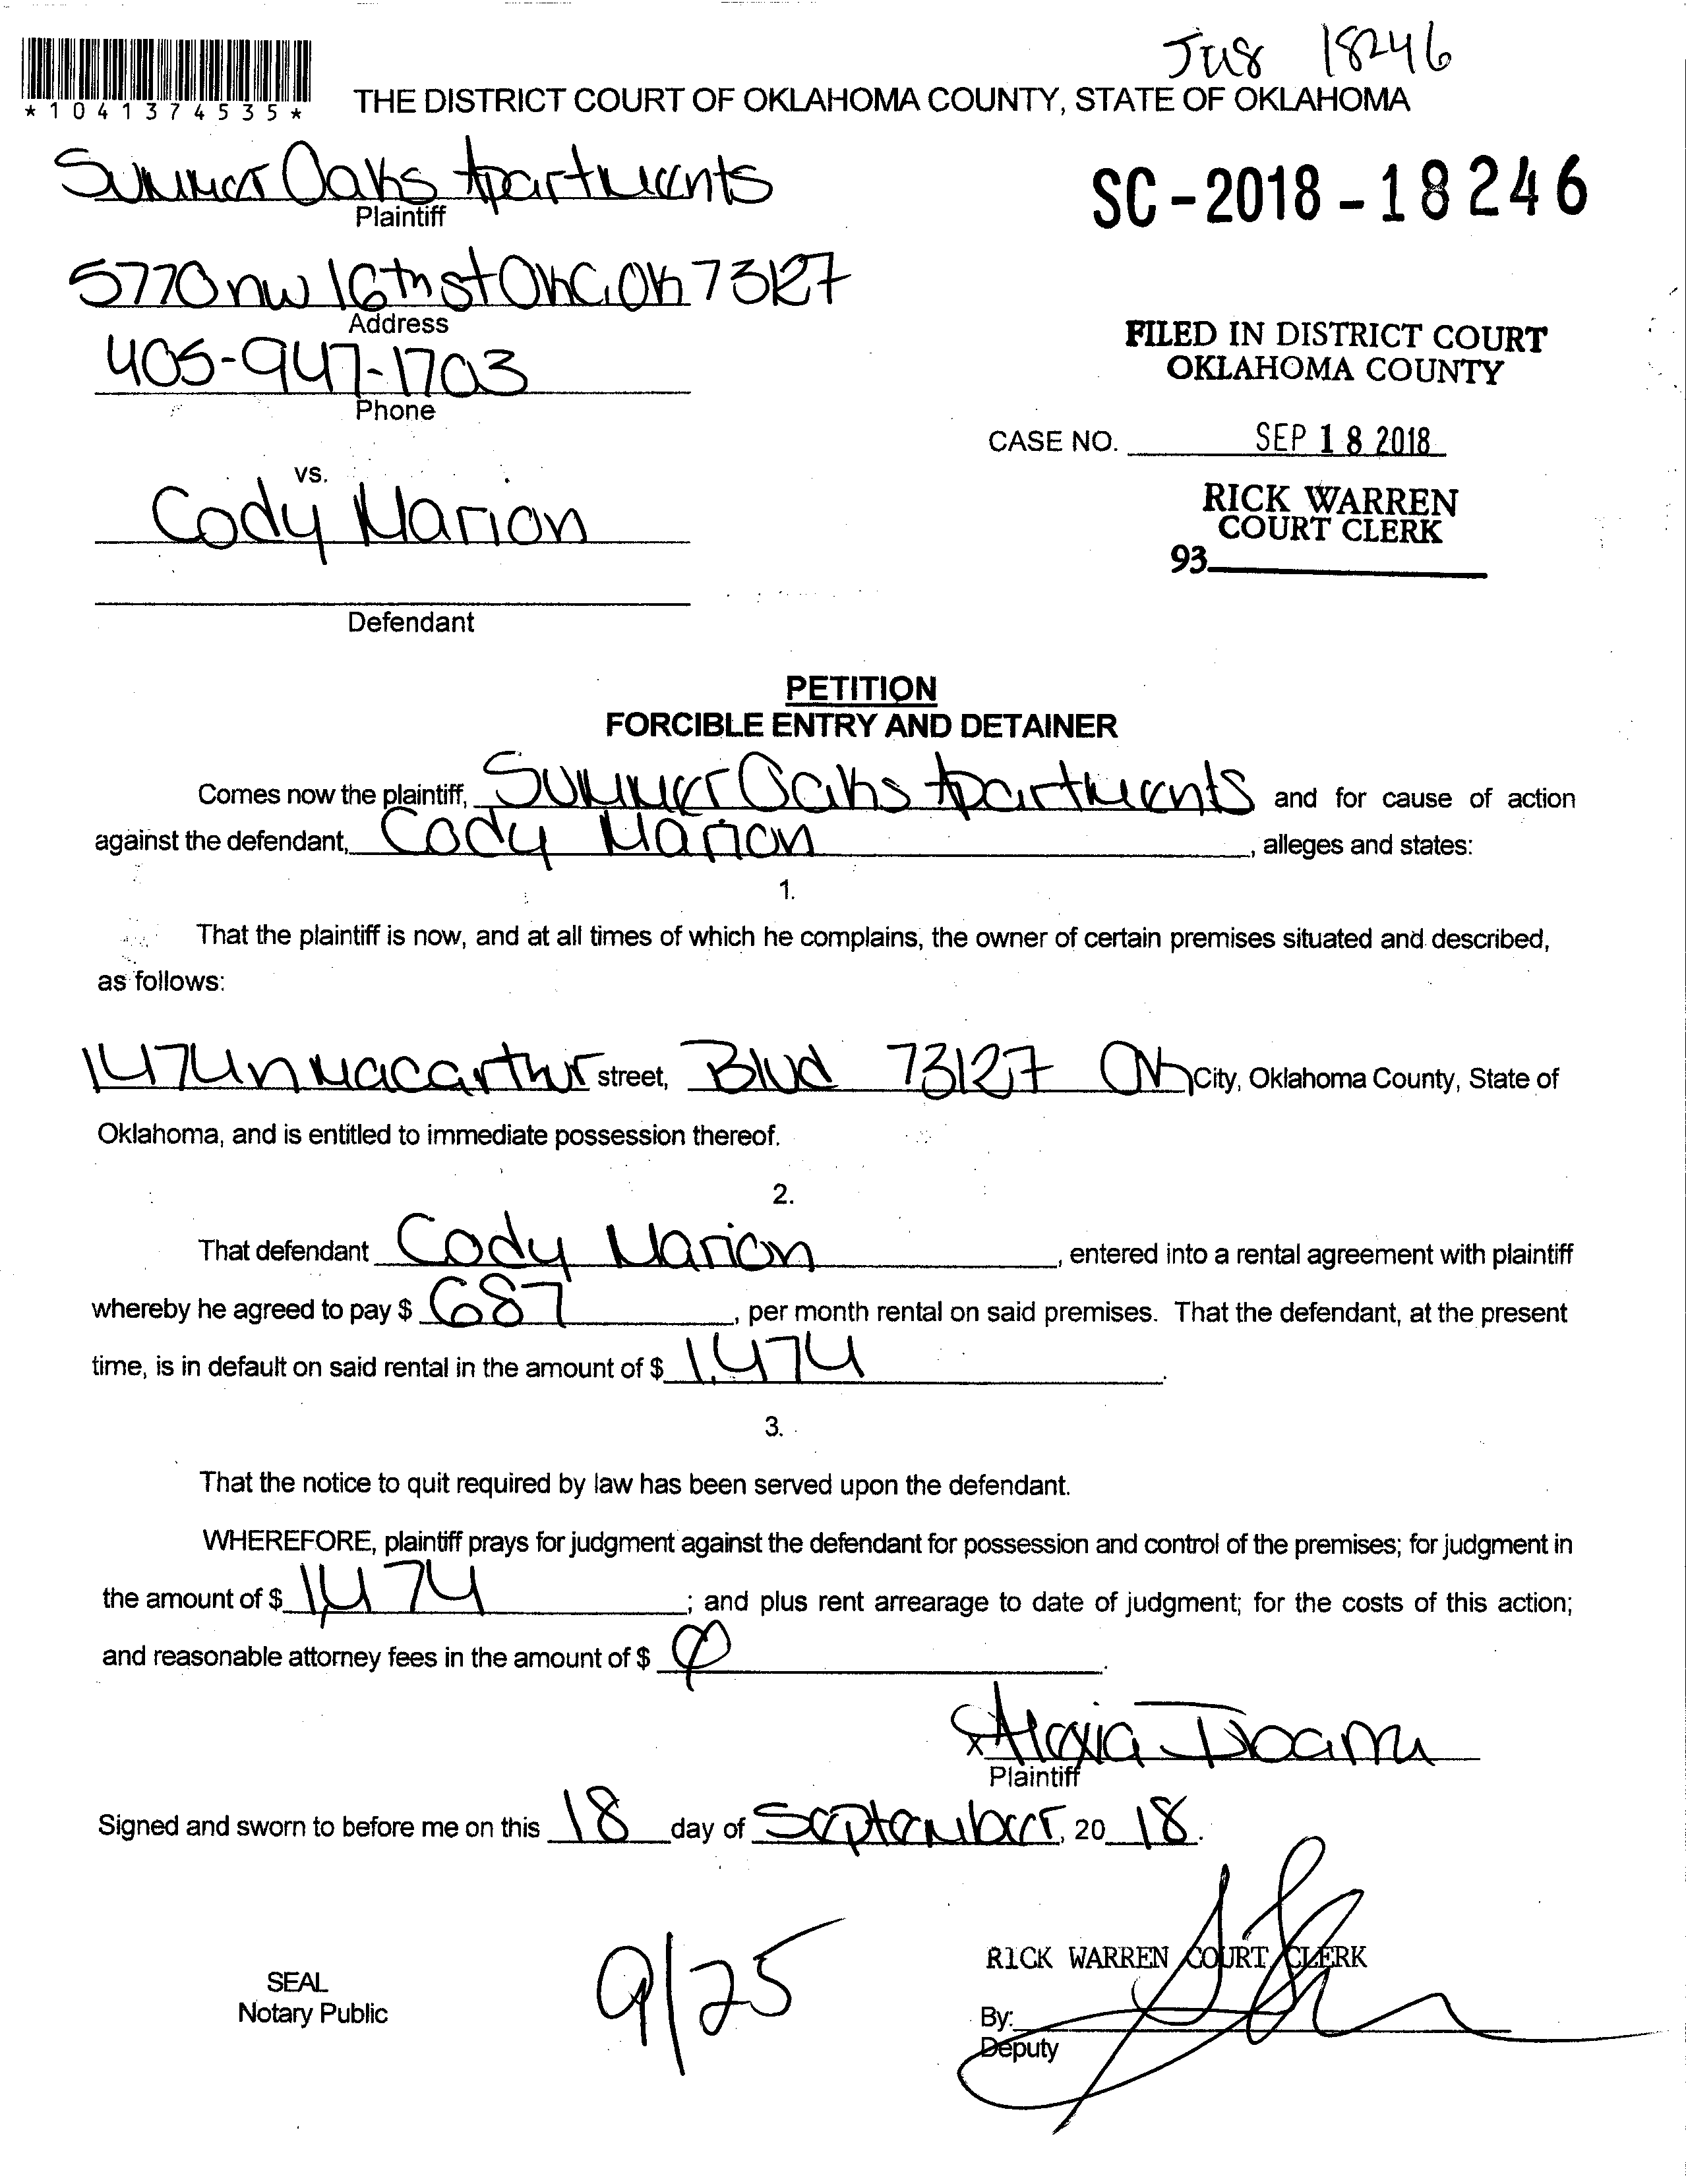 18246
*1041374535*
THE DISTRICT COURT OF OKLAHOMA COUNTY, STATE OF OKLAHOMA
Summer Oaks Apartments
Plaintiff
SC-2018-18246
5770 nw 16th st OKC, OK 73127
Address
405-947-1703
Phone
FILED IN DISTRICT COURT
OKLAHOMA COUNTY
CASE NO. SEP 18 2018
vs.
RICK WARREN
COURT CLERK
93
Cody Marion
Defendant
PETITION
FORCIBLE ENTRY AND DETAINER
Comes now the plaintiff, Summer Oaks Apartments and for cause of action
against the defendant, Cody Marion, alleges and states:
1.
That the plaintiff is now, and at all times of which he complains, the owner of certain premises situated and described,
as follows:
1474 n macarthur street, Blvd 73127 Ok City, Oklahoma County, State of
Oklahoma, and is entitled to immediate possession thereof.
2.
That defendant Cody Marion, entered into a rental agreement with plaintiff
whereby he agreed to pay $ 687, per month rental on said premises. That the defendant, at the present
time, is in default on said rental in the amount of $ 1,474.
3.
That the notice to quit required by law has been served upon the defendant.
WHEREFORE, plaintiff prays for judgment against the defendant for possession and control of the premises; for judgment in
the amount of $ 1,474; and plus rent arrearage to date of judgment; for the costs of this action;
and reasonable attorney fees in the amount of $ Ø.
x Alexia
Plaintiff
Signed and sworn to before me on this 18 day of September, 20 18.
SEAL
Notary Public
9/25
RICK WARREN COURT CLERK
By:
Deputy